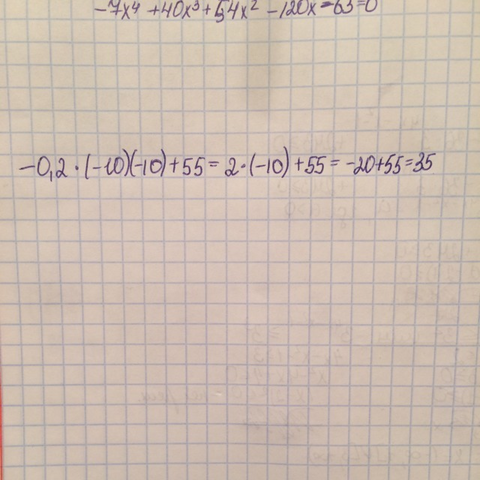 -7x⁴ +40x³+54x² -120x-63=0
-0,2·(-10)(-10)+55= 2·(-10)+55= -20+55=35